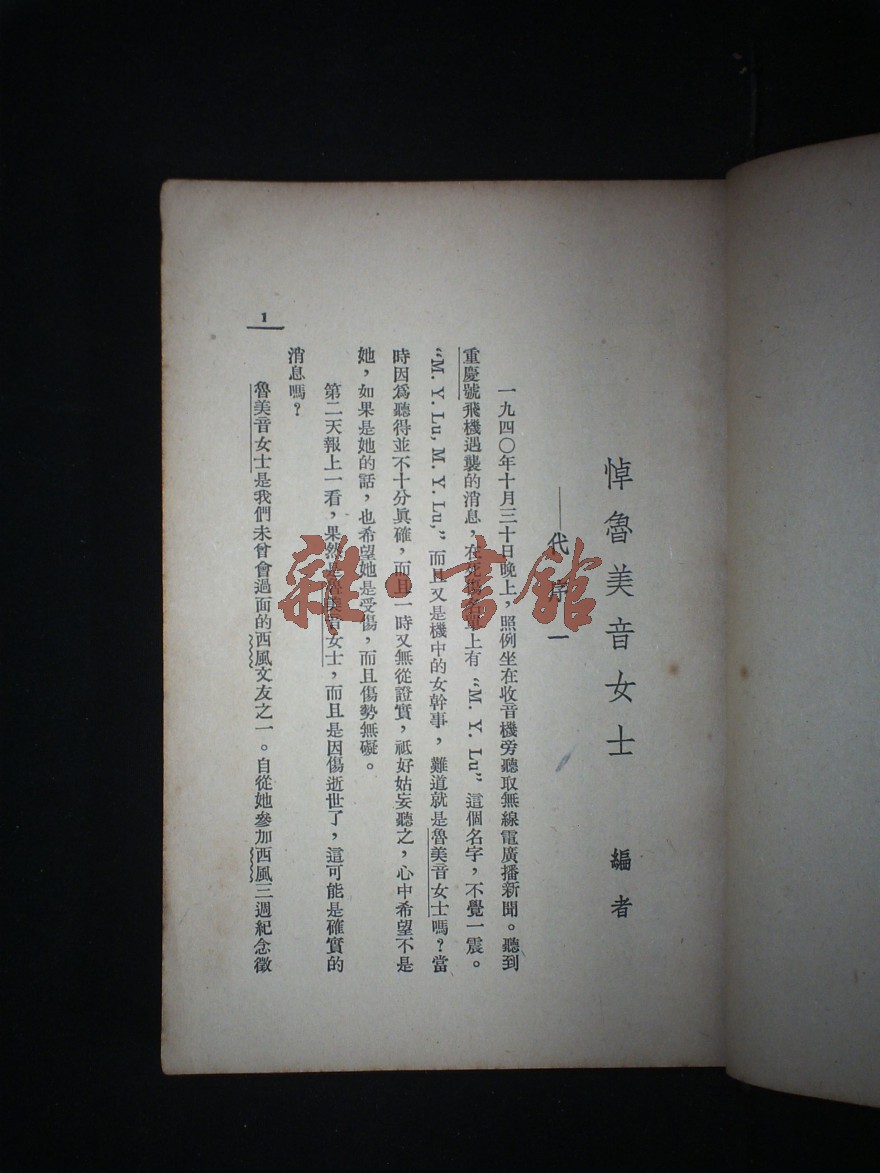 悼魯美音女士　編者
——代序一
一九四〇年十月三十日晚上，照例坐在收音機旁聽取無線電廣播新聞。聽到
重慶號飛機遇襲的消息，在死傷名單上有“M. Y. Lu”這個名字，不覺一震。
“M. Y. Lu, M. Y. Lu,”而且又是機中的女幹事，難道就是魯美音女士嗎？當
時因爲聽得並不十分眞確，而且一時又無從證實，祇好姑妄聽之，心中希望不是
她，如果是她的話，也希望她是受傷，而且傷勢無礙。
第二天報上一看，果然是魯美音女士，而且是因傷逝世了，這可能是確實的
消息嗎？
魯美音女士是我們未曾會過面的西風文友之一。自從她參加西風三週紀念徵
1
雜·書館